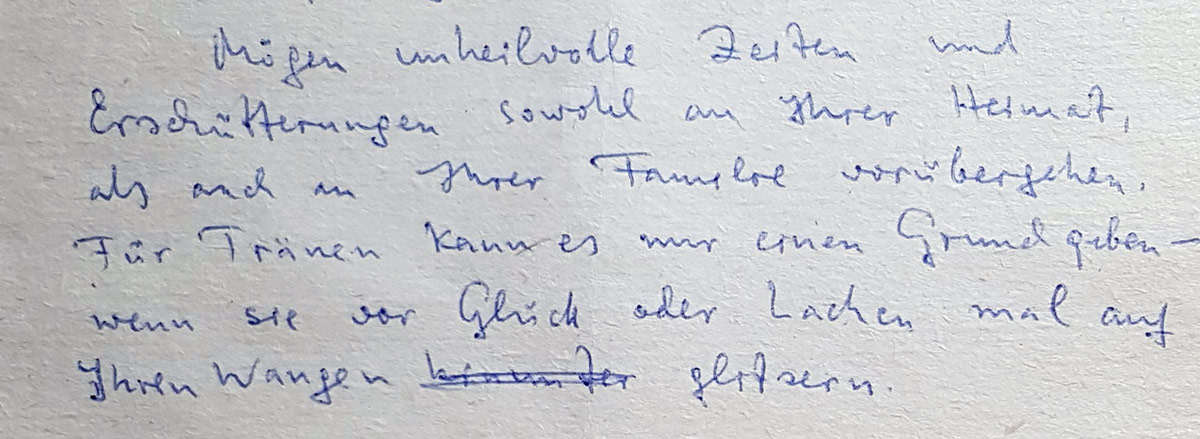 Mögen unheilvolle Zeiten und
Erschütterungen sowohl an Ihrer Heimat,
als auch an Ihrer Familie vorübergehen.
Für Tränen kann es nur einen Grund geben –
wenn sie vor Glück oder Lachen mal auf
Ihren Wangen hinunter glitzern.